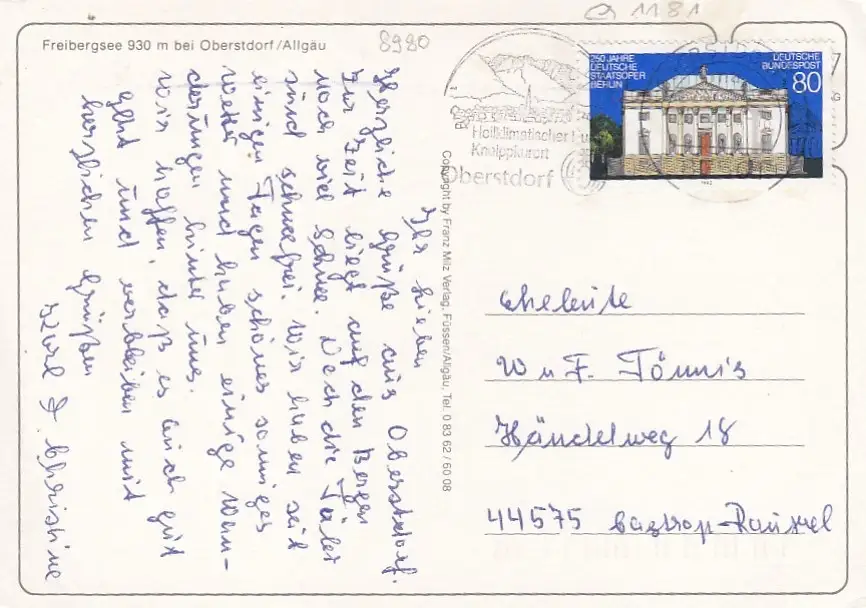 Freibergsee 930 m bei Oberstdorf/Allgäu
8980
1181
250 JAHRE
DEUTSCHE
STAATSOPER
BERLIN
DEUTSCHE
BUNDESPOST
80
Heilklimatischer Ku
Kneippkurort
Oberstdorf
Copyright by Franz Milz Verlag, Füssen/Allgäu, Tel. 0 83 62 / 60 08
Ihr Lieben
Herzliche Grüße aus Oberstdorf.
Zur Zeit liegt auf den Bergen
noch viel Schnee. Doch die Täler
sind schneefrei. Wir haben seit
einigen Tagen schönes sonniges
Wetter und haben einige Wan-
derungen hinter uns.
Wir hoffen, daß es Euch gut
geht und verbleiben mit
herzlichen Grüßen
Christine
Eheleute
W u F. Tönnis
Händelweg 18
44575 Castrop-Rauxel